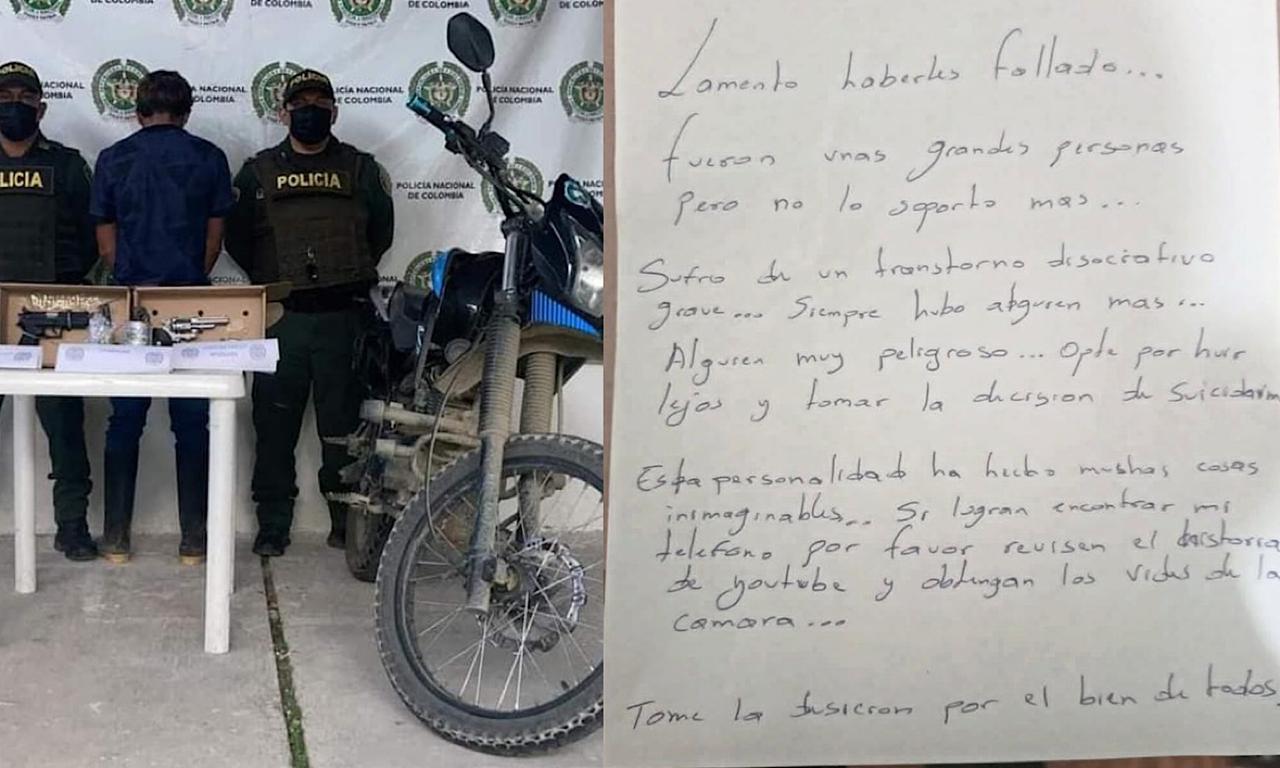 DE COLOMBIA
DE COLOMBIA
DE COLOMBIA
POLICÍA
POLICÍA NACIONAL
DE COLOMBIA
LICIA
POLICIA
POLICÍA NACIONAL
DE COLOMBIA
Lamento haberles follado...
fueron unas grandes personas
pero no lo soporto mas...
Sufro de un transtorno disociativo
grave... Siempre hubo alguien mas...
Alguien muy peligroso... Opte por huir
lejos y tomar la decision de Suicidarm
Esta personalidad ha hecho muchas cosas
inimaginables... Si logran encontrar mi
telefono por favor revisen el
de youtube y obtengan los vides de la
camara...
Tome la desicion por el bien de todos.